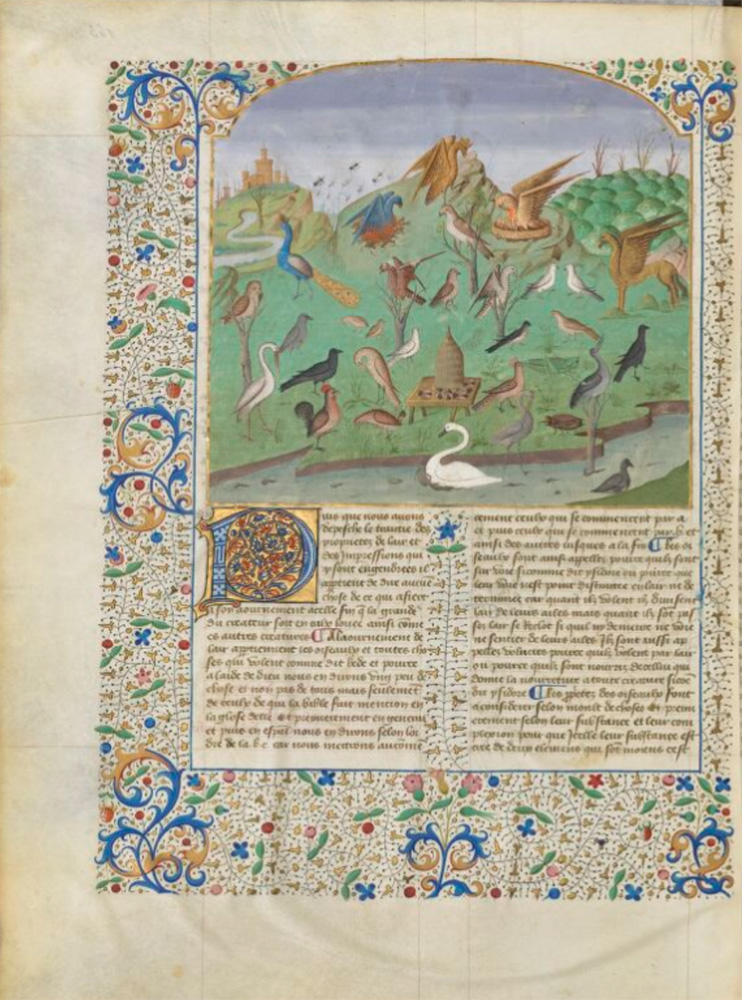 Puis que nous auons
depesche le traittie des
proprietez de lair et
des Impressions qui
y sont engendrees il
appartient de dire aucune
chose de ce qui affiert
a son aournement affin que la grande
du createur soit en eulx louee ainsi come
es autres creatures A laournement de
lair appertiennent les oyseaulx et toutes cho
ses qui volent comme dit bede et pource
a laide de dieu nous en dirons ung peu de
chose et non pas de tous mais seulement
de ceulx de qui la bible fait mention en
la glose Et premierement en general
et puis en espal nous en dirons selon lor
dre de la b c car nous mettrons
cement ceulx qui se commencent par a
et puis ceulx qui se commencent par b et
ainsi des autres iusques a la fin les oy
seaulx sont ainsi appellez pource quilz sont
sur voie si comme dit ysidore
leur voie nest point en lair ne de
terminee car quant ilz volent ilz diuisent
lair de leurs ailes mais quant ilz sont pas
sez lair se reclot si quil ny demeure ne voie
ne sentier de leurs ailes Ilz sont aussi ap
pellez volatiles pource quilz volent par lair
ou pource quilz sont nourris de cellui qui
donne la nourreture a toute creature sicome
dit ysidore Les des oiseaulx sont
a considerer selon moult de choses Et premi
erement selon leur substance et leur com
plexion pour que leur substance est
de deux elemens qui sont moiens cest